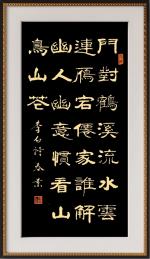 門對鶴溪流水雲
連雁宕僊家誰解
幽人幽意慣看山
鳥山花
李白詩